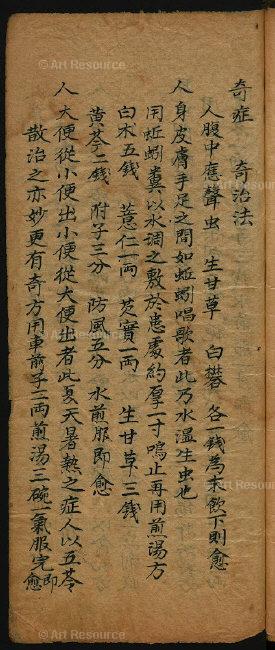 奇症 奇治法
人腹中應聲虫 生甘草 白礬 各一錢為末飲下則愈
人身皮膚手足之間如蚯蚓唱歌者此乃水湿生虫也
用蚯蚓糞以水調之敷於患處約厚一寸鳴止再用煎湯方
白朮五錢 薏仁一両 芡實一両 生甘草三錢
黄芩二錢 附子三分 防風五分 水煎服即愈
人大便從小便出小便從大便出者此夏天暑熱之症人以五苓
散治之亦妙更有奇方用車前子三両煎湯三碗一氣服完即愈
© Art Resource
© Art Resource
© Art Resource
© Art Resource
© Art Resource
© Art Resource
© Art Resource
© Art Resource